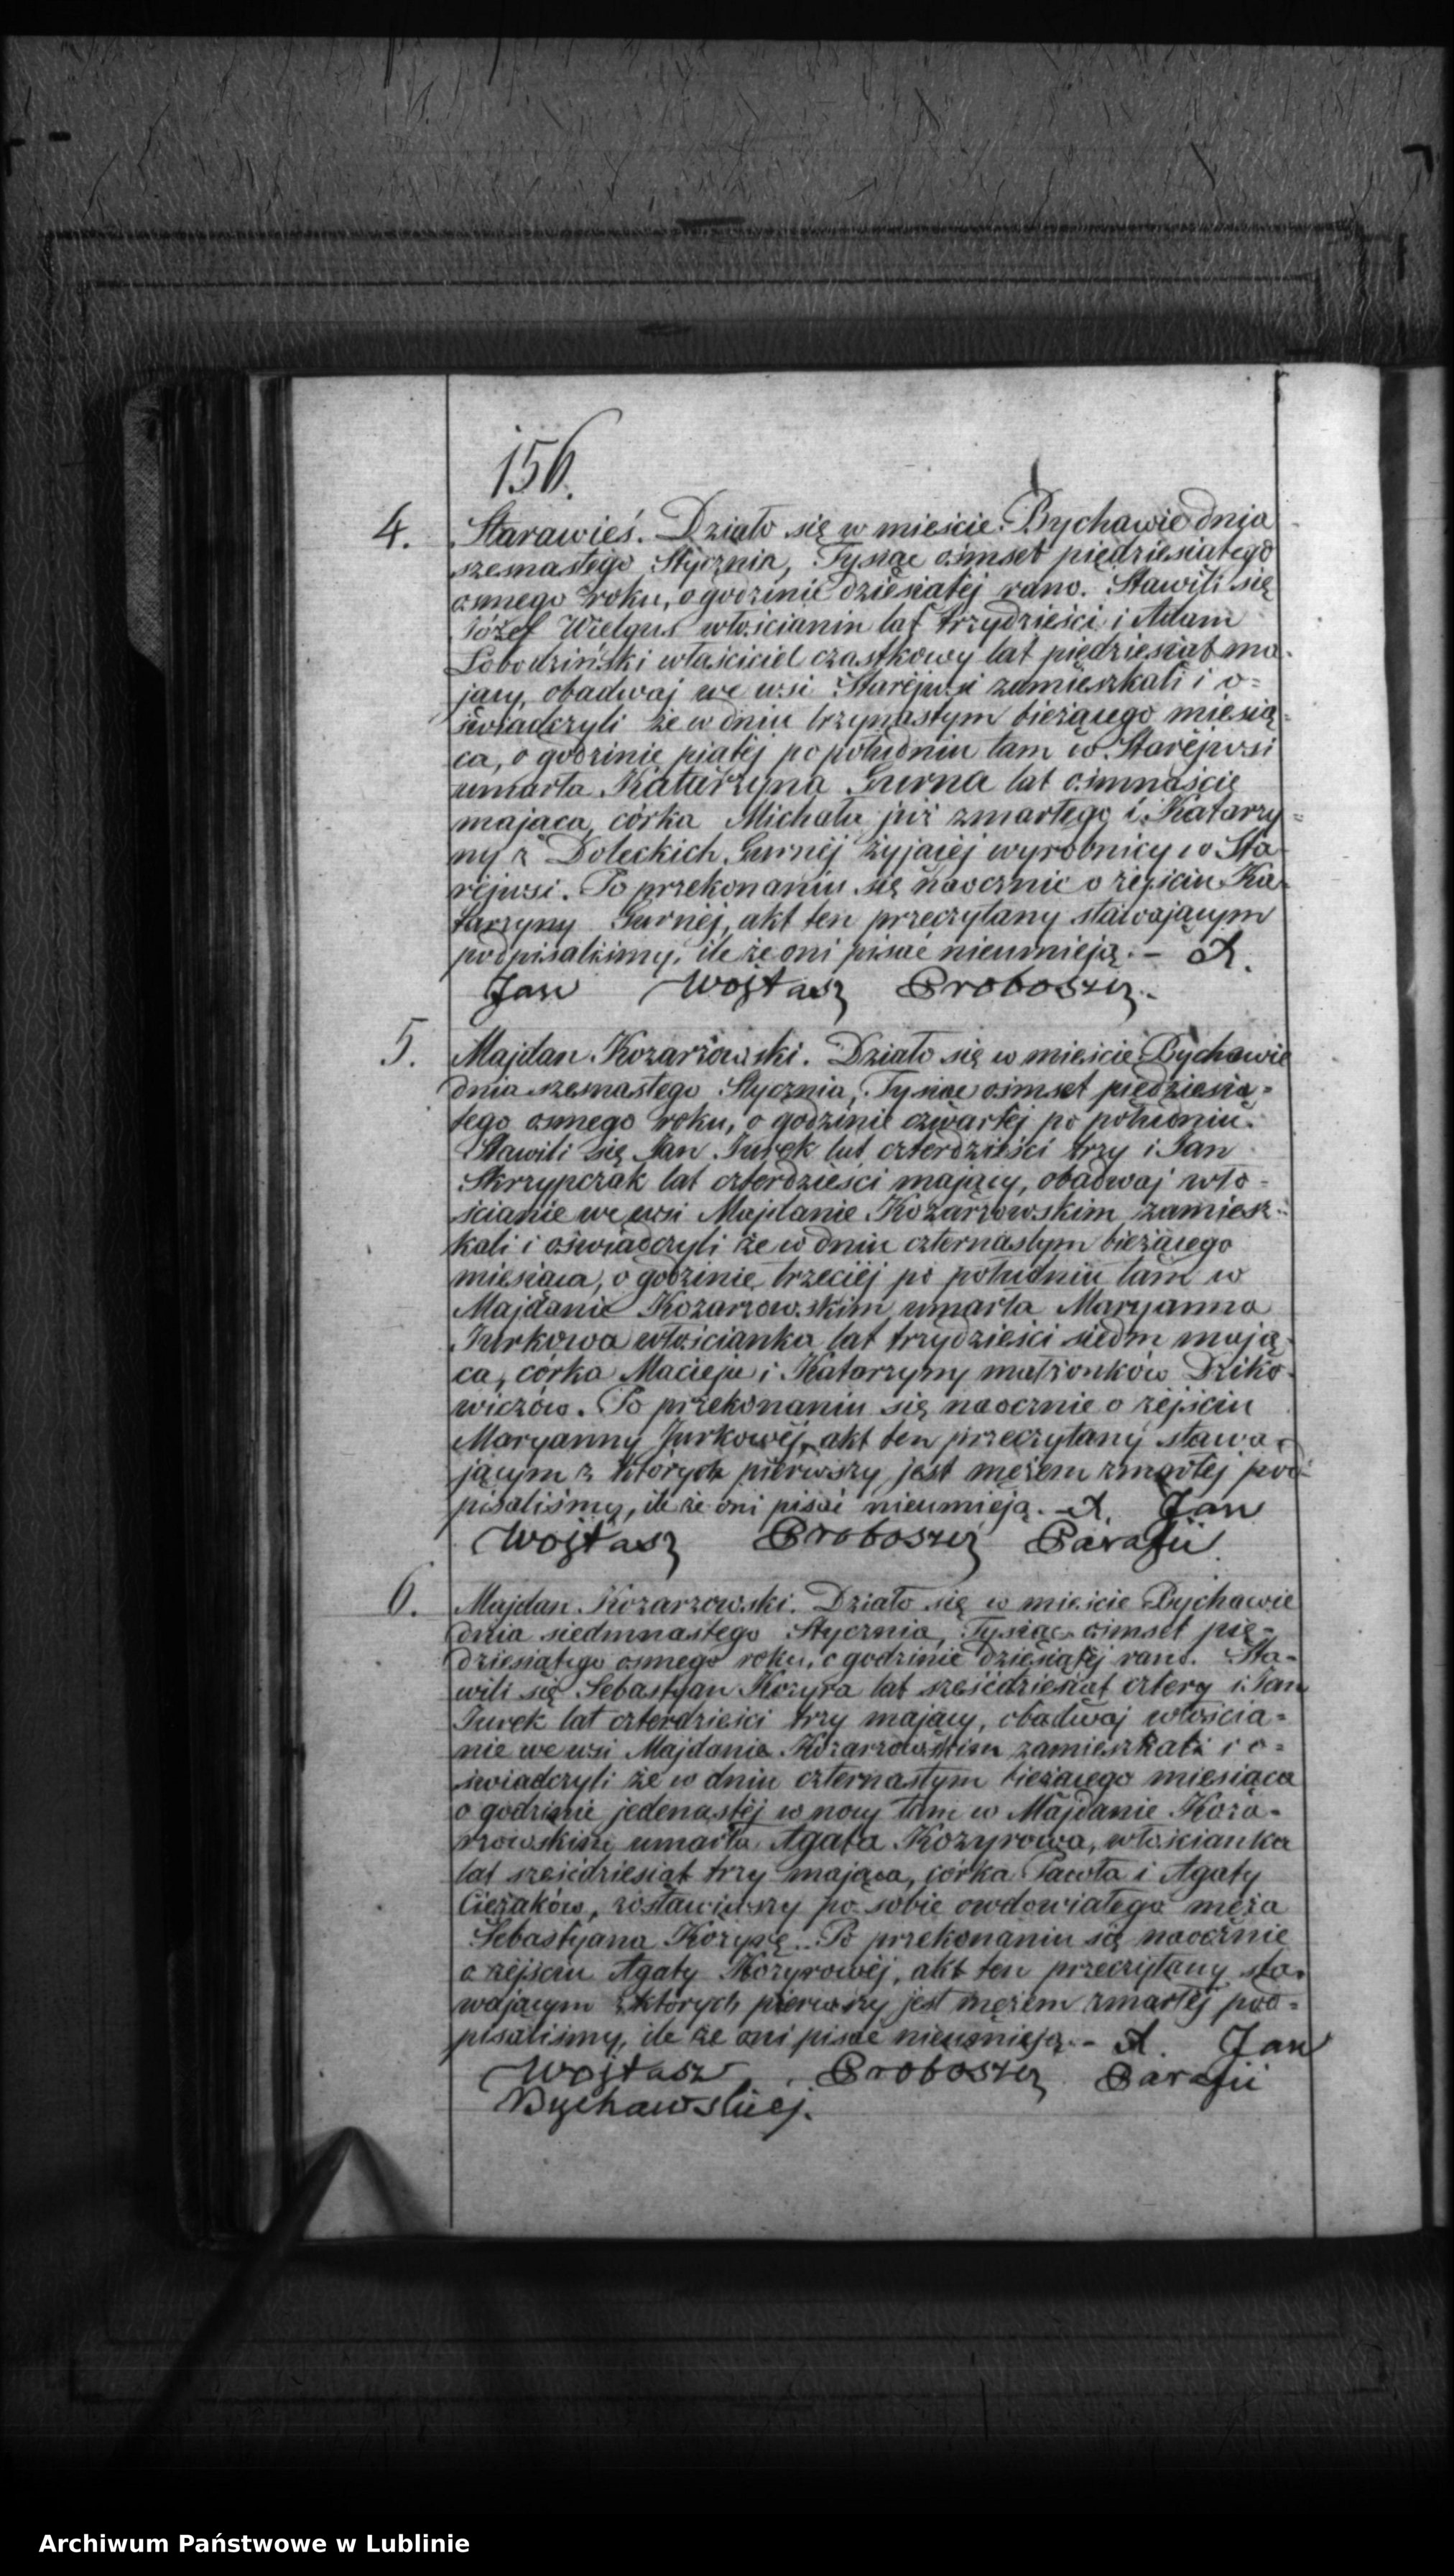 156.
4. Starawieś. Działo się w mieście Bychawie dnia
szesnastego Stycznia, Tysiąc ośmset piędziesiątego
osmego roku, o godzinie dziesiątej rano. Stawili się
Józef Wielgus włościanin lat trzydzieści i Adam
Łobodziński właściciel cząstkowy lat piędziesiąt ma-
jący, obadwaj we wsi Starejwsi zamieszkali i o=
świadczyli że w dniu trzynastym bieżącego miesią=
ca, o godzinie piątej po południu tam w Starejwsi
umarła Katarzyna Gurna lat ośmnaście
mająca, córka Michała już zmarłego i Katarzy=
ny z Doleckich Gurnej żyjącej wyrobnicy w Sta
rejwsi. Po przekonaniu się naocznie o zejściu Ka-
tarzyny Gurnej, akt ten przeczytany stawającym
podpisaliśmy, ile że oni pisać nieumieją. – X.
Jan Wojtasz Proboszcz.
5. Majdan Kozarzowski. Działo się w mieście Bychawie
dnia szesnastego Stycznia, Tysiąc ośmset piędziesią=
tego osmego roku, o godzinie czwartej po południu.
Stawili się Jan Jurek lat czterdzieści trzy i Jan
Skrzypczak lat czterdzieści mający, obadwaj wło=
ścianie we wsi Majdanie Kozarzowskim zamiesz=
kali i oświadczyli że w dniu czternastym bieżącego
miesiąca, o godzinie trzeciej po południu tam w
Majdanie Kozarzowskim umarła Maryanna
Jurkowa włościanka lat trzydzieści siedm mają-
ca, córka Macieja i Katarzyny małżonków Dziko-
wiczów. Po przekonaniu się naocznie o zejściu
Maryanny Jurkowej, akt ten przeczytany stawa-
jącym z których pierwszy jest mężem zmarłej pod=
pisaliśmy, ile że oni pisać nieumieją. – X. Jan
Wojtasz Proboszcz Parafii
6. Majdan Kozarzowski. Działo się w mieście Bychawie
dnia siedmnastego Stycznia, Tysiąc ośmset pię=
dziesiątego osmego roku, o godzinie dziesiątej rano. Sta=
wili się Sebastyan Kozyra lat sześćdziesiąt cztery i Jan
Jurek lat czterdzieści trzy mający, obadwaj włościa=
nie we wsi Majdanie Kozarzowskim zamieszkali i o=
świadczyli że w dniu czternastym bieżącego miesiąca
o godzinie jedenastej w nocy tam w Majdanie Koza=
rzowskim umarła Agata Kozyrowa, włościanka
lat sześćdziesiąt trzy mająca, córka Pawła i Agaty
Cieżaków, zostawiwszy po sobie owdowiałego męża
Sebastjana Kozyrę. Po przekonaniu się naocznie
o zejściu Agaty Kozyrowej, akt ten przeczytany sta=
wającym z których pierwszy jest mężem zmarłej pod=
pisaliśmy, ile że oni pisać nieumieją. – X. Jan
Wojtasz Proboszcz Parafii
Bychawskiej.
Archiwum Państwowe w Lublinie